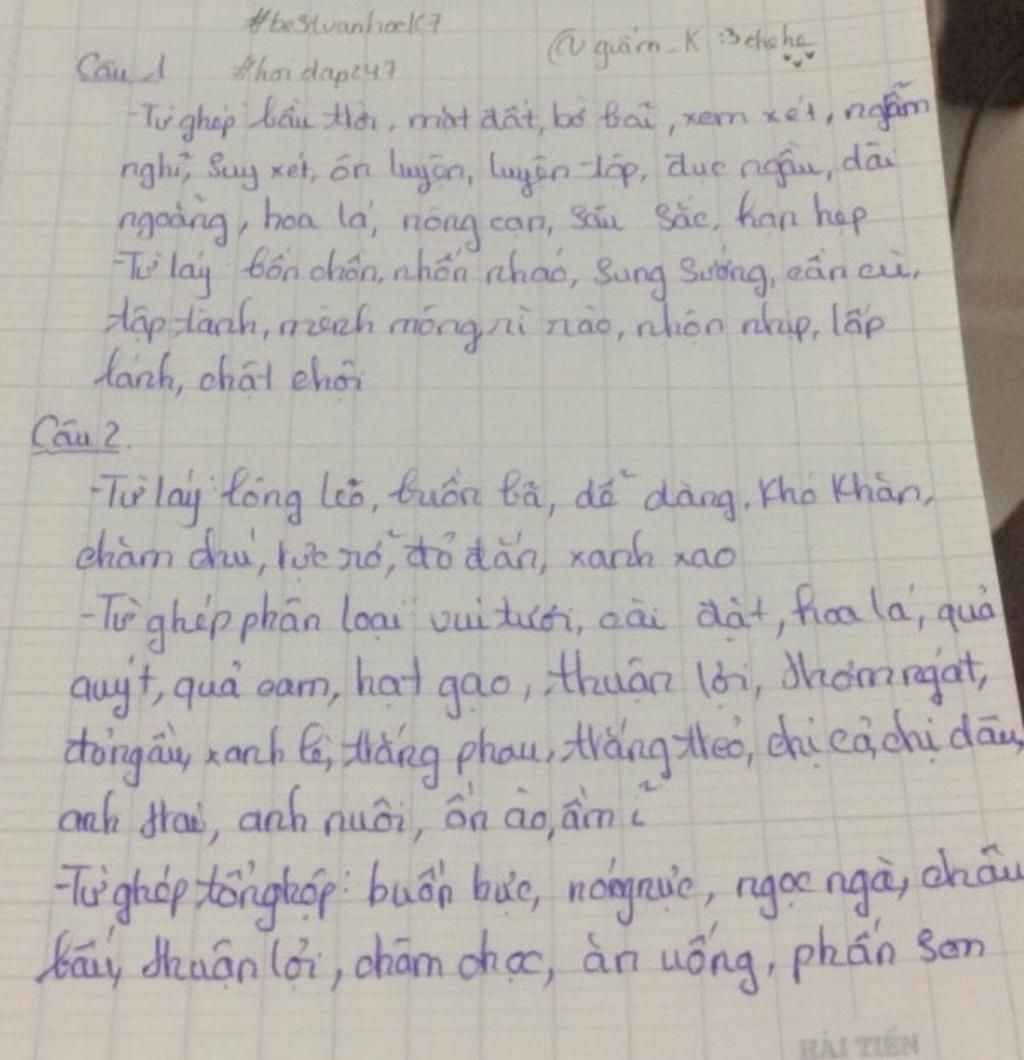 #bestvanhock7
@giấm_K :3 chehe
Câu 1 #hoidap247
-Từ ghép bầu trời, mặt đất, bờ bãi, xem xét, ngẫm
nghĩ, Suy xét, ôn luyện, luyện tập, đục ngầu, dài
ngoằng, hoa lá, nông cạn, sâu sắc, hạn hẹp
-Từ láy bồn chồn, nhốn nháo, sung sướng, cần cù,
tấp tành, mênh mông, rì rào, nhộn nhịp, lấp
lánh, chật chội
Câu 2.
-Từ láy lỏng lẻo, buồn bã, dễ dàng, khó khăn,
chăm chú, rực rỡ, đỏ đắn, xanh xao
-Từ ghép phân loại vui tươi, cài đặt, hoa lá, quả
quýt, quả cam, hạt gạo, thuận lợi, thơm ngát,
đỏ ngầu, xanh lè, trắng phau, trắng trẻo, chị cả, chị dâu,
anh trai, anh nuôi, ồn ào, ầm ĩ
-Từ ghép tổng hợp: buồn bực, nóng nực, ngọc ngà, châu
báu, thuận lợi, chăm chọc, ăn uống, phấn son
HẢI TIẾN